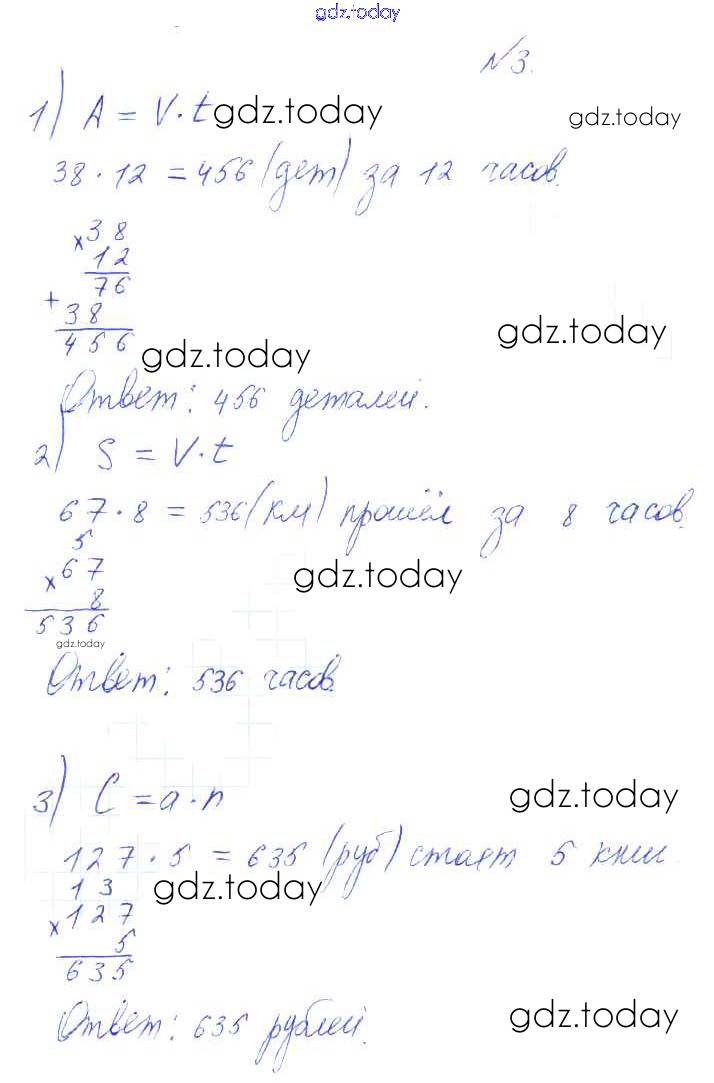 gdz.today
№3.
1) A = V·t gdz.today gdz.today
38·12 = 456 (дет) за 12 часов.
×38
12
76
+
38 gdz.today
456 gdz.today
Ответ: 456 деталей.
2) S = V·t
67·8 = 536 (км) прошёл за 8 часов.
5
×67 gdz.today
8
536
gdz.today
Ответ: 536 часов.
3) C = a·n gdz.today
127·5 = 635 (руб) стоят 5 книг.
13 gdz.today
×127
5
635
Ответ: 635 рублей. gdz.today